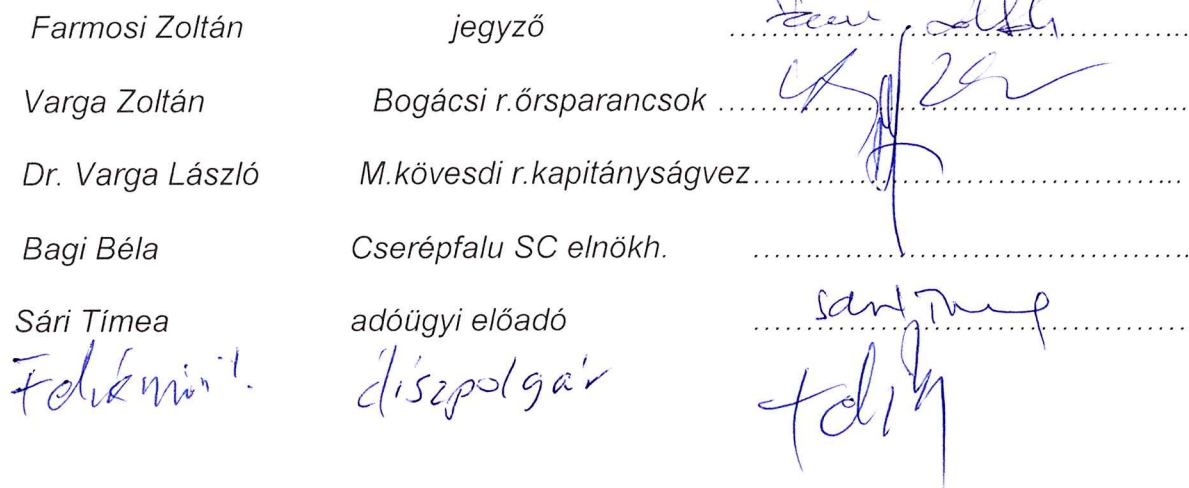 Farmosi Zoltán jegyző ........................................
Varga Zoltán Bogácsi r.őrsparancsok ........................................
Dr. Varga László M.kövesdi r.kapitányságvez........................................
Bagi Béla Cserépfalu SC elnökh. ........................................
Sári Tímea adóügyi előadó Sári Tímea
díszpolgár